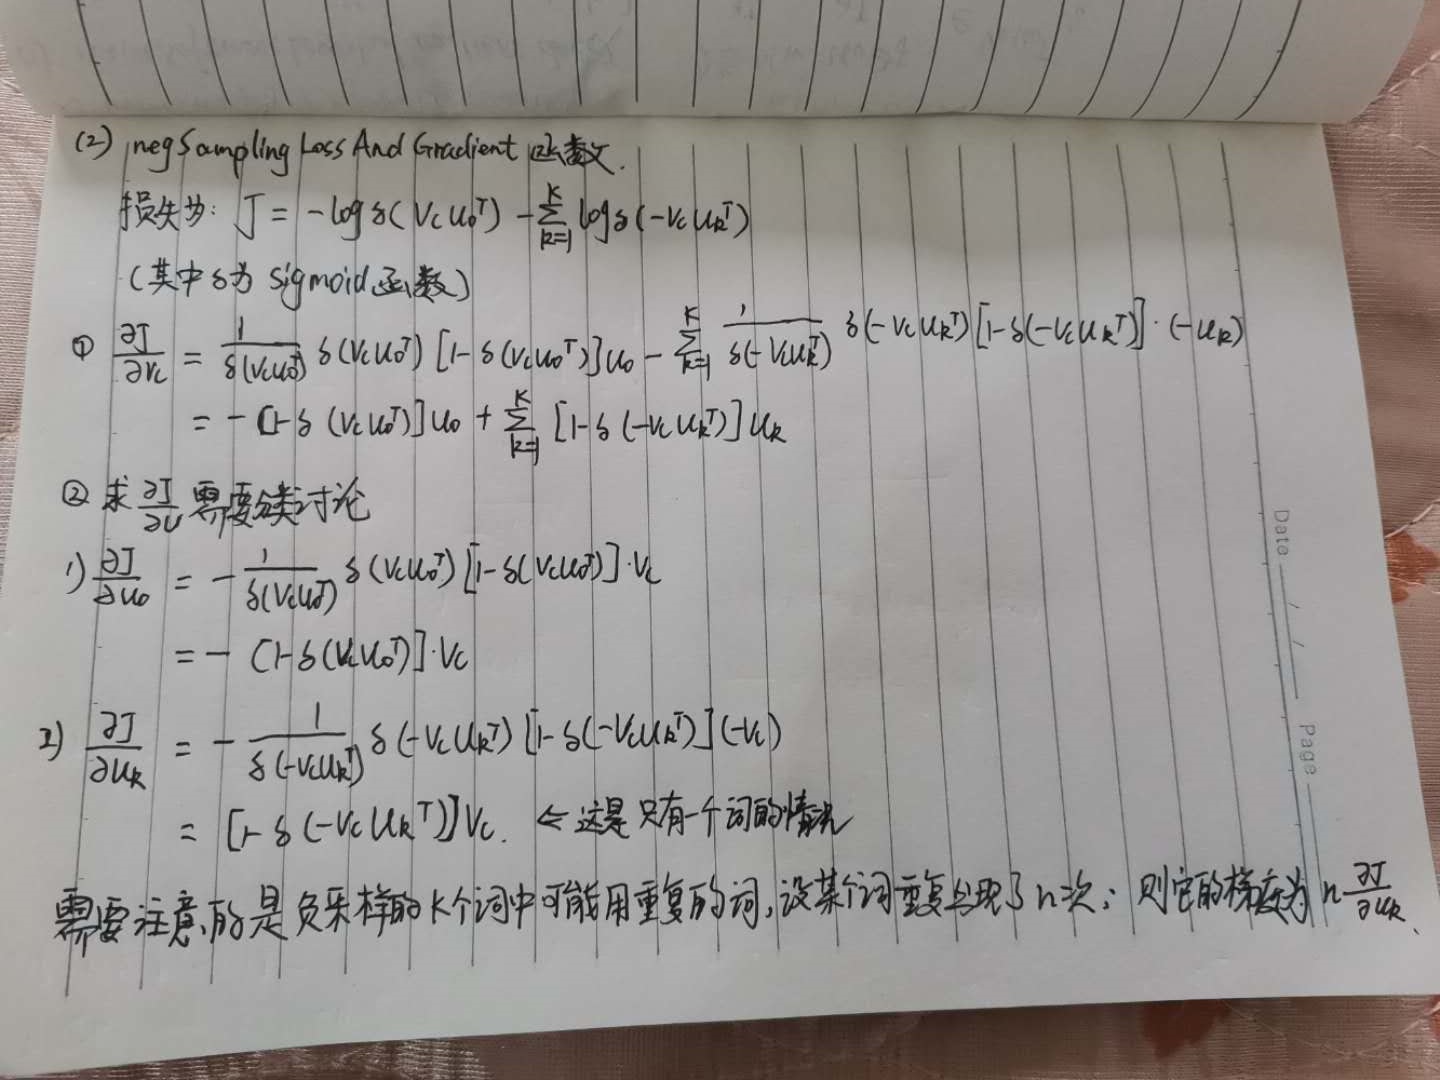 (2) negSamplingLossAndGradient函数.
损失为: J = -logδ(VcUo^T) - Σ_{k=1}^{K} logδ(-VcUk^T)
(其中δ为 sigmoid函数)
① ∂J/∂Vc = 1/δ(VcUo^T) δ(VcUo^T) [1-δ(VcUo^T)]Uo - Σ_{k=1}^{K} 1/δ(-VcUk^T) δ(-VcUk^T)[1-δ(-VcUk^T)]·(-Uk)
= -[1-δ(VcUo^T)]Uo + Σ_{k=1}^{K} [1-δ(-VcUk^T)]Uk
② 求 ∂J/∂U 需要分类讨论
1) ∂J/∂Uo = - 1/δ(VcUo^T) δ(VcUo^T)[1-δ(VcUo^T)]·Vc
= - [1-δ(VcUo^T)]·Vc
2) ∂J/∂Uk = - 1/δ(-VcUk^T) δ(-VcUk^T)[1-δ(-VcUk^T)](-Vc)
= [1-δ(-VcUk^T)]Vc. ← 这是只有一个词的情况
需要注意的是负采样的K个词中可能用重复的词,设某个词重复出现了n次; 则它的梯度为 n ∂J/∂Uk.
Date / /
Page